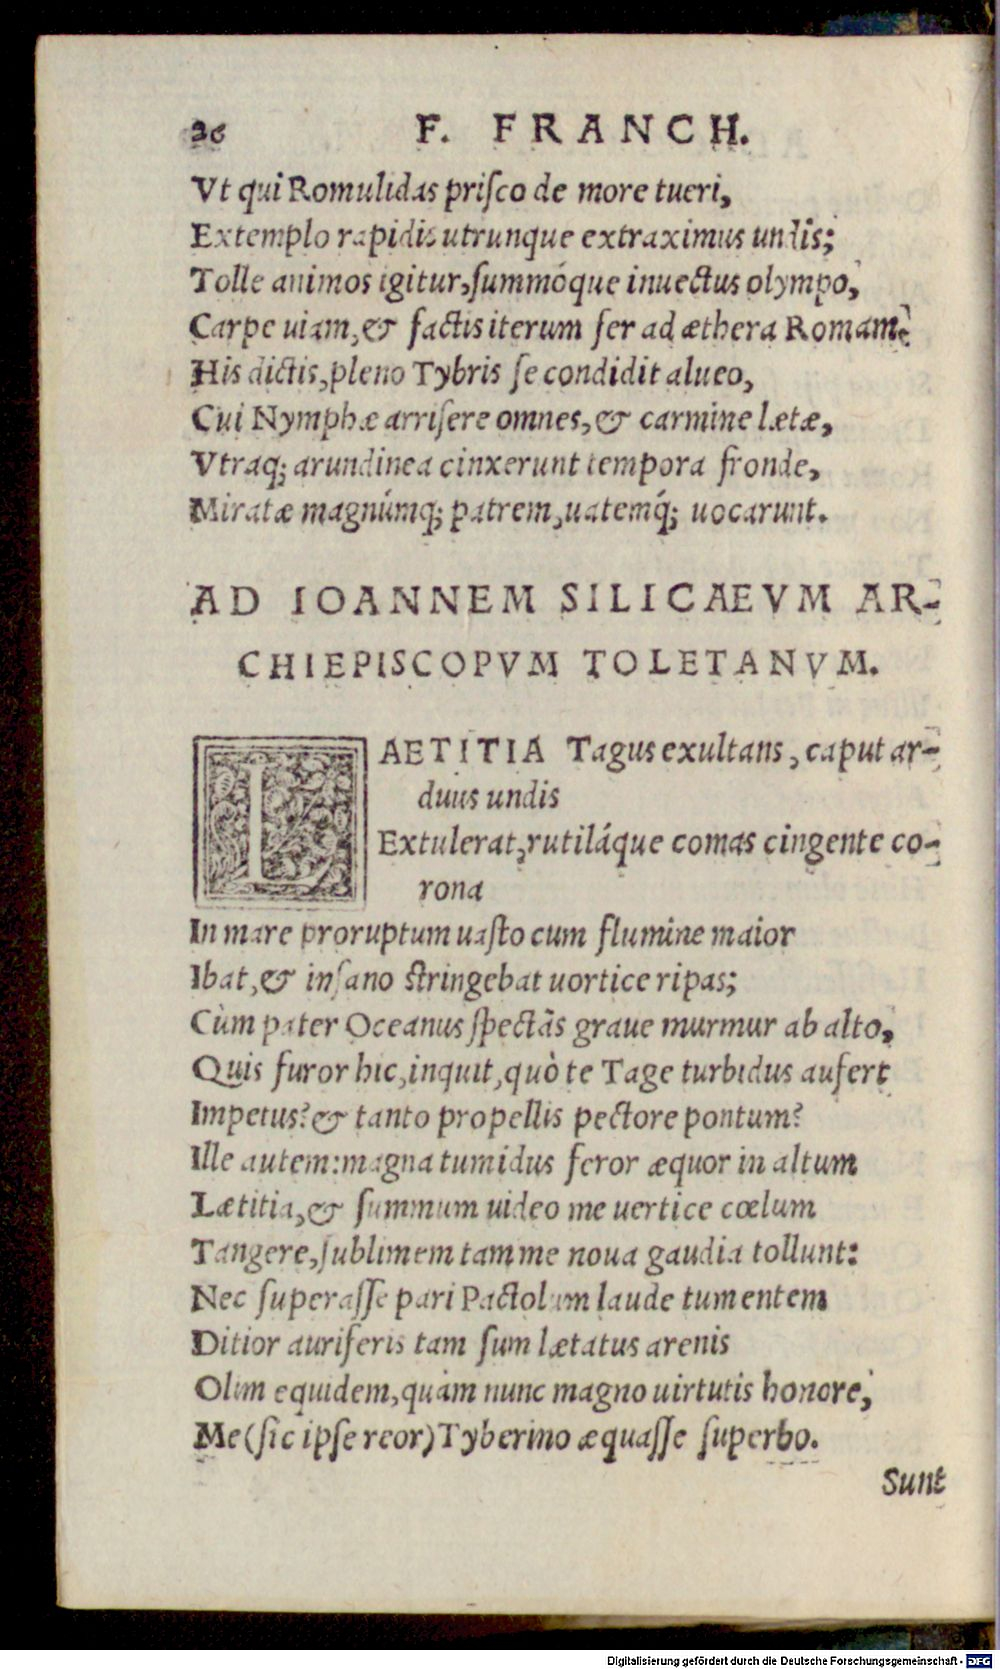 26 F. FRANCH.
Vt qui Romulidas priſco de more tueri,
Extemplo rapidis utrunque extraximus undis;
Tolle animos igitur, ſummóque inuectus olympo,
Carpe uiam, & factis iterum fer ad æthera Romam.
His dictis, pleno Tybris ſe condidit alueo,
Cui Nymphæ arriſere omnes, & carmine lætæ,
Vtraq; arundinea cinxerunt tempora fronde,
Miratæ magnúmq; patrem, uatemq́; uocarunt.
AD IOANNEM SILICAEVM AR-
CHIEPISCOPVM TOLETANVM.
LAETITIA Tagus exultans, caput ar-
duus undis
Extulerat, rutiláque comas cingente co-
rona
In mare proruptum uaſto cum flumine maior
Ibat, & inſano stringebat uortice ripas;
Cùm pater Oceanus ſpectãs graue murmur ab alto,
Quis furor hic, inquit, quò te Tage turbidus aufert
Impetus? & tanto propellis pectore pontum?
Ille autem: magna tumidus feror æquor in altum
Lætitia, & ſummum uideo me uertice cœlum
Tangere, ſublimem tam me noua gaudia tollunt:
Nec ſuperaſſe pari Pactolum laude tumentem
Ditior auriferis tam ſum lætatus arenis
Olim equidem, quàm nunc magno uirtutis honore,
Me (ſic ipſe reor) Tyberino æquaſſe ſuperbo.
Sunt
Digitalisierung gefördert durch die Deutsche Forschungsgemeinschaft - DFG